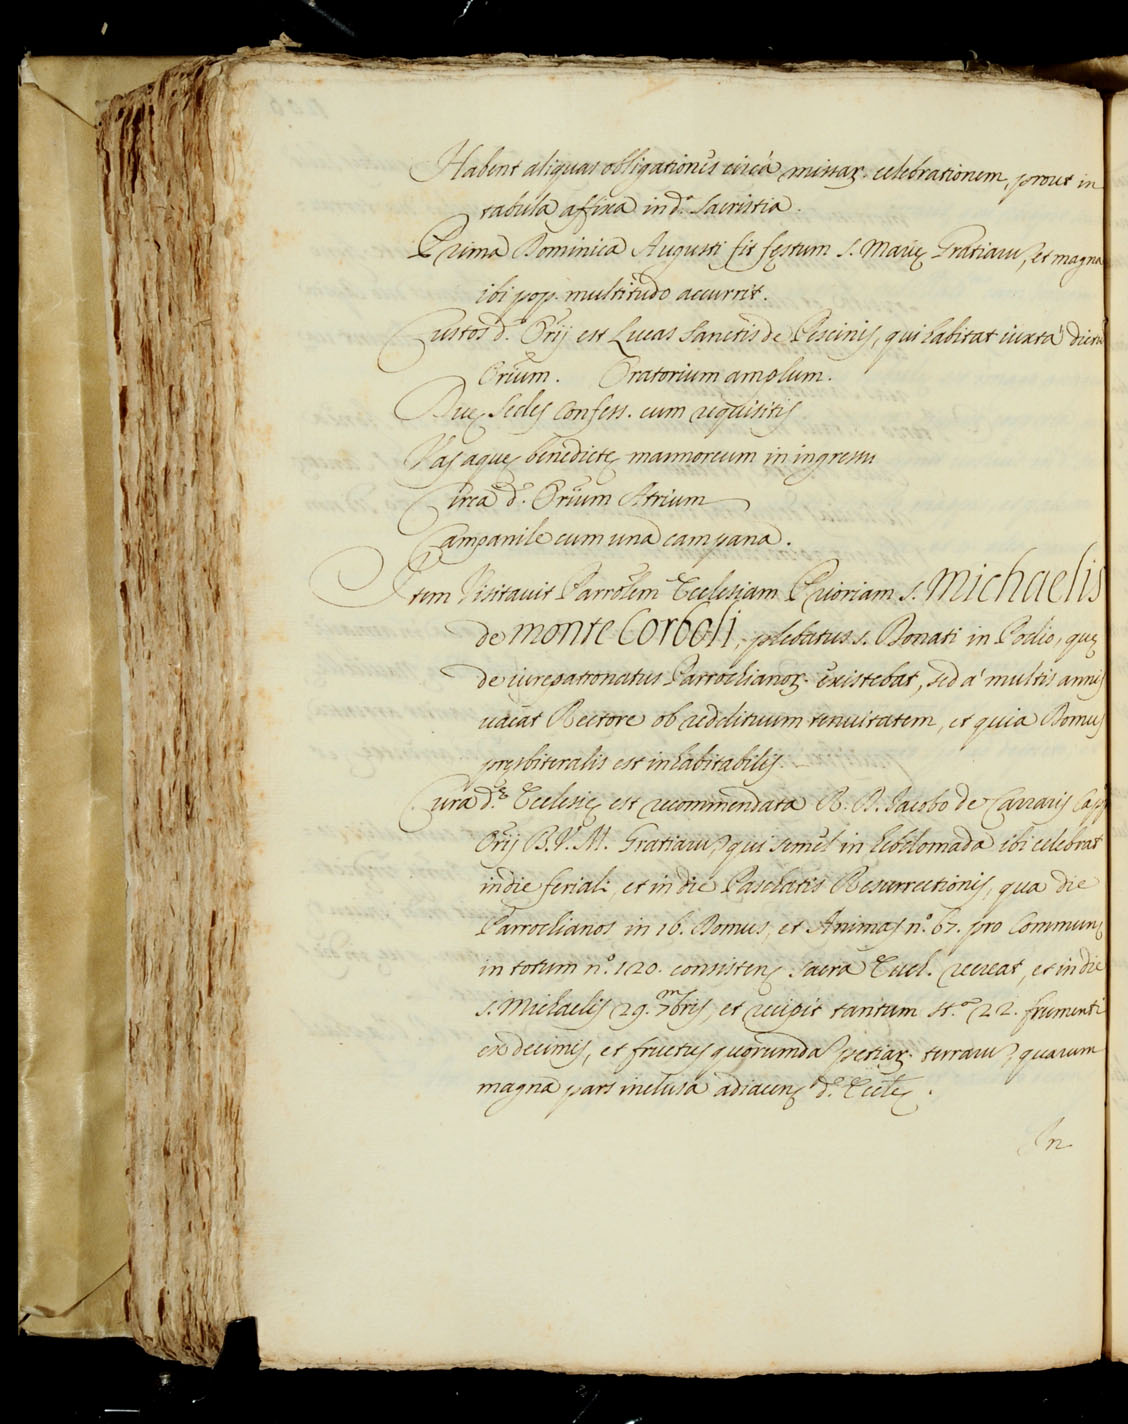 Habent aliquas obligationes circà missar. celebrationem, prout in
tabula affixa in d.ᵃ Sacristia.
Prima Dominica Augusti fit festum S. Marię Gratiaru, et magna
ibi pop. multitudo accurrit.
Custos d. Orij est Lucas Sanctis de Piscinis, qui habitat iuxtà dictu
Orium. Oratorium amplum.
Duę sedes Confess. cum requisitis
Vas aquę benedictę marmoreum in ingressu
Circa d. Orium Atrium
Campanile cum una campana.
Item Visitavit Parrolem Ecclesiam Prioriam S. Michaelis
de monte Corboli, plebatus S. Donati in Podio, quę
de iurepatronatus Parrochianor. existebat, sed à multis annis
vacat Rectore ob reddituum tenuitatem, et quia Domus
pręsbiteralis est inhabitabilis.
Cura d.ᵉ Ecclesię est recommendata R. D. Jacobo de Carraris Capp
Orij B. V. M. Gratiaru, qui semel in hebdomada ibi celebrat
in die feriali, et in die Paschatis Resurrectionis, qua die
Parrochianos in 16. Domus, et Animas n.º 67. pro Communę
in totum n.º 120. consistenę sacra Eucl. recreat, et in die
S. Michaelis 29. 7mbris, et recipit tantum st.ᵃ 22. frumenti
ex decimis, et fructus quorumda petiar. terraru, quarum
magna pars inclusa adiacenę d.ᵉ Eccleę.
In